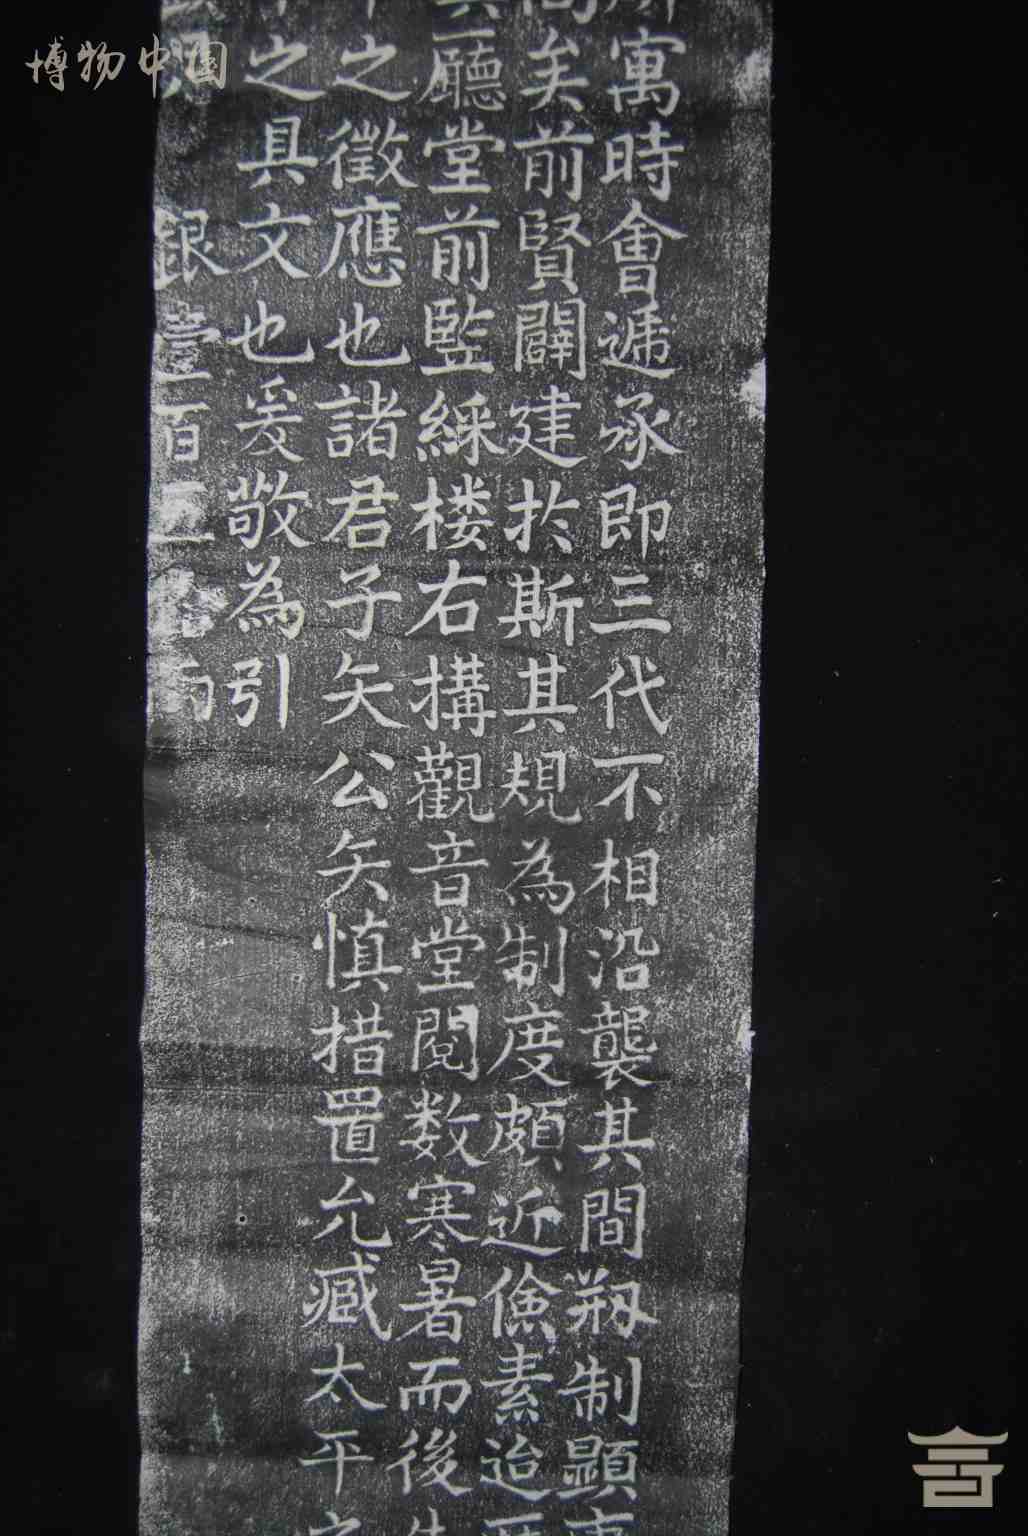 博物中国
寓時會遞承即三代不相沿襲其間剏制顯
矣前賢闢建於斯其規為制度頗近儉素迨
廳堂前監綵楼右搆觀音堂閱数寒暑而後
之徵應也諸君子矢公矢慎措置允臧太平之
之具文也爰敬為引
銀壹百 拾兩